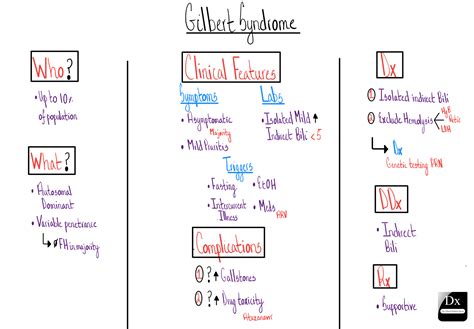 Gilbert Syndrome
Who?
• Up to 10%
of population
What?
• Autosomal
Dominant
• Variable penetrance
↳ ∅ FH in majority
Clinical Features
Symptoms
• Asymptomatic
Majority
• Mild Pruritus
Labs
• Isolated Mild ↑
Indirect Bili <5
Triggers
• Fasting
• Intercurrent
Illness
• EtOH
• Meds
ARV
Complications
① ? ↑ Gallstones
② ? ↑ Drug toxicity
Atazanavir
Dx
① Isolated indirect Bili
② Exclude Hemolysis
HgB
Retic
LDH
↳ Dx
Genetic testing PRN
DDx
• Indirect
Bili
Rx
• Supportive
Dx